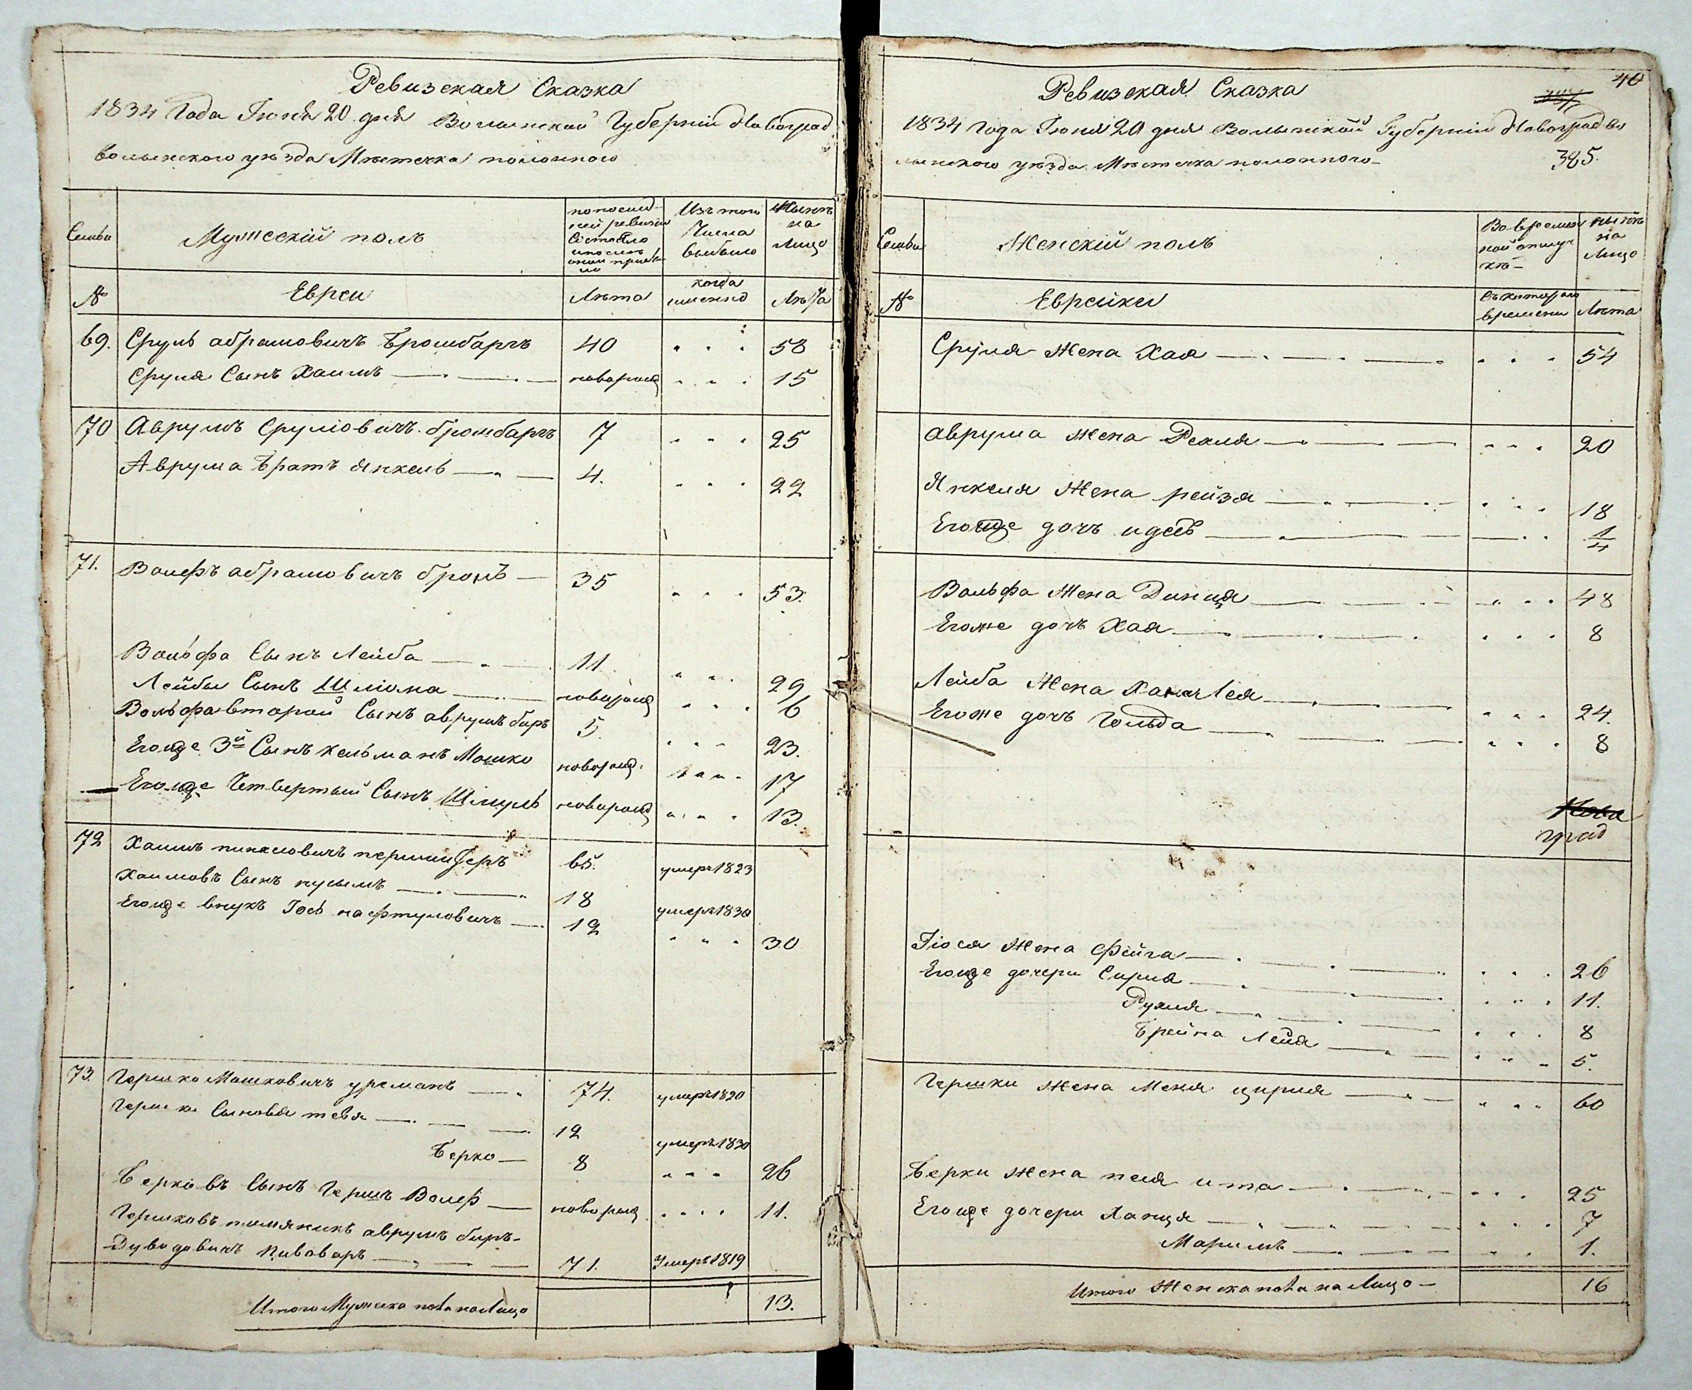 Ревизская Сказка
1834 Года Іюня 20 дня Волынской Губерніи Новоград
волынского уѣзда Мѣстечка полонного
Семьи
Мужескій полъ
по послѣд
ней ревизіи
состояло
и послѣ
оной
Изъ того
Числа
выбыло
Нынѣ
на
Лицо
№
Евреи
Лѣта
когда
именно
Лѣта
69. Сруль абрамовичъ Бромбаргъ 40 58
Сруля Сынъ Хаимъ новорожд 15
70 Аврумъ Сруліовичъ бромбаргъ 7 25
Аврума Братъ Янкель 4. 22
71. Волефъ абрамовичъ бромъ 35 53.
Вольфа Сынъ Лейба 11 29
Лейбы Сынъ Шліома новорожд 6
Вольфа второй Сынъ аврумъ беръ 5. 23.
Егожде 3й Сынъ кельманъ Мошко новорожд. 17
Егожде Четвертый Сынъ Шмуль новорожд 13.
72 Хаимъ пинхасовичъ 65. умеръ 1823
Хаимовъ Сынъ нусымъ 18 умеръ 1830
Егожде внукъ Іось нафтуловичъ 12 30
73. Гершко Мошковичъ урманъ 74. умеръ 1820
Гершки Сыновья тевя 12 умеръ 1830
Берко 8 26
Берковъ Сынъ Гершъ Волеф новорожд 11.
Гершковъ племяникъ аврумъ беръ-
Дувидовичъ пивоваръ 71. Умеръ 1819
Итого Мужеска пола на Лицо 13.
40
385.
Ревизская Сказка
1834 Года Іюня 20 дня Волынской Губерніи Новоград во
лынского уѣзда Мѣстечка полонного
Семьи
Женскій полъ
Во времян
ной отлуч
кѣ
Нынѣ
на
Лицо
№
Еврейки
Съ котораго
времени
Лѣта
Сруля Жена Хая 54
аврума Жена Рекля 20
Янкеля Жена рейзя 18
Егожде дочъ идесь 1/4
Вольфа Жена Динця 48
Егоже дочъ Хая 8
Лейба Жена Хана Лея 24.
Егоже дочъ Гольда 8
град
Іося Жена Фейга 26
Егожде дочери Сирля 11.
Рухля 8
Брейна Лея 5.
Гершки Жена Меня цирля 60
Берки Жена песя ита 25
Егожде дочери Ханця 7
Маримъ 1.
Итого Женска пола на Лицо 16